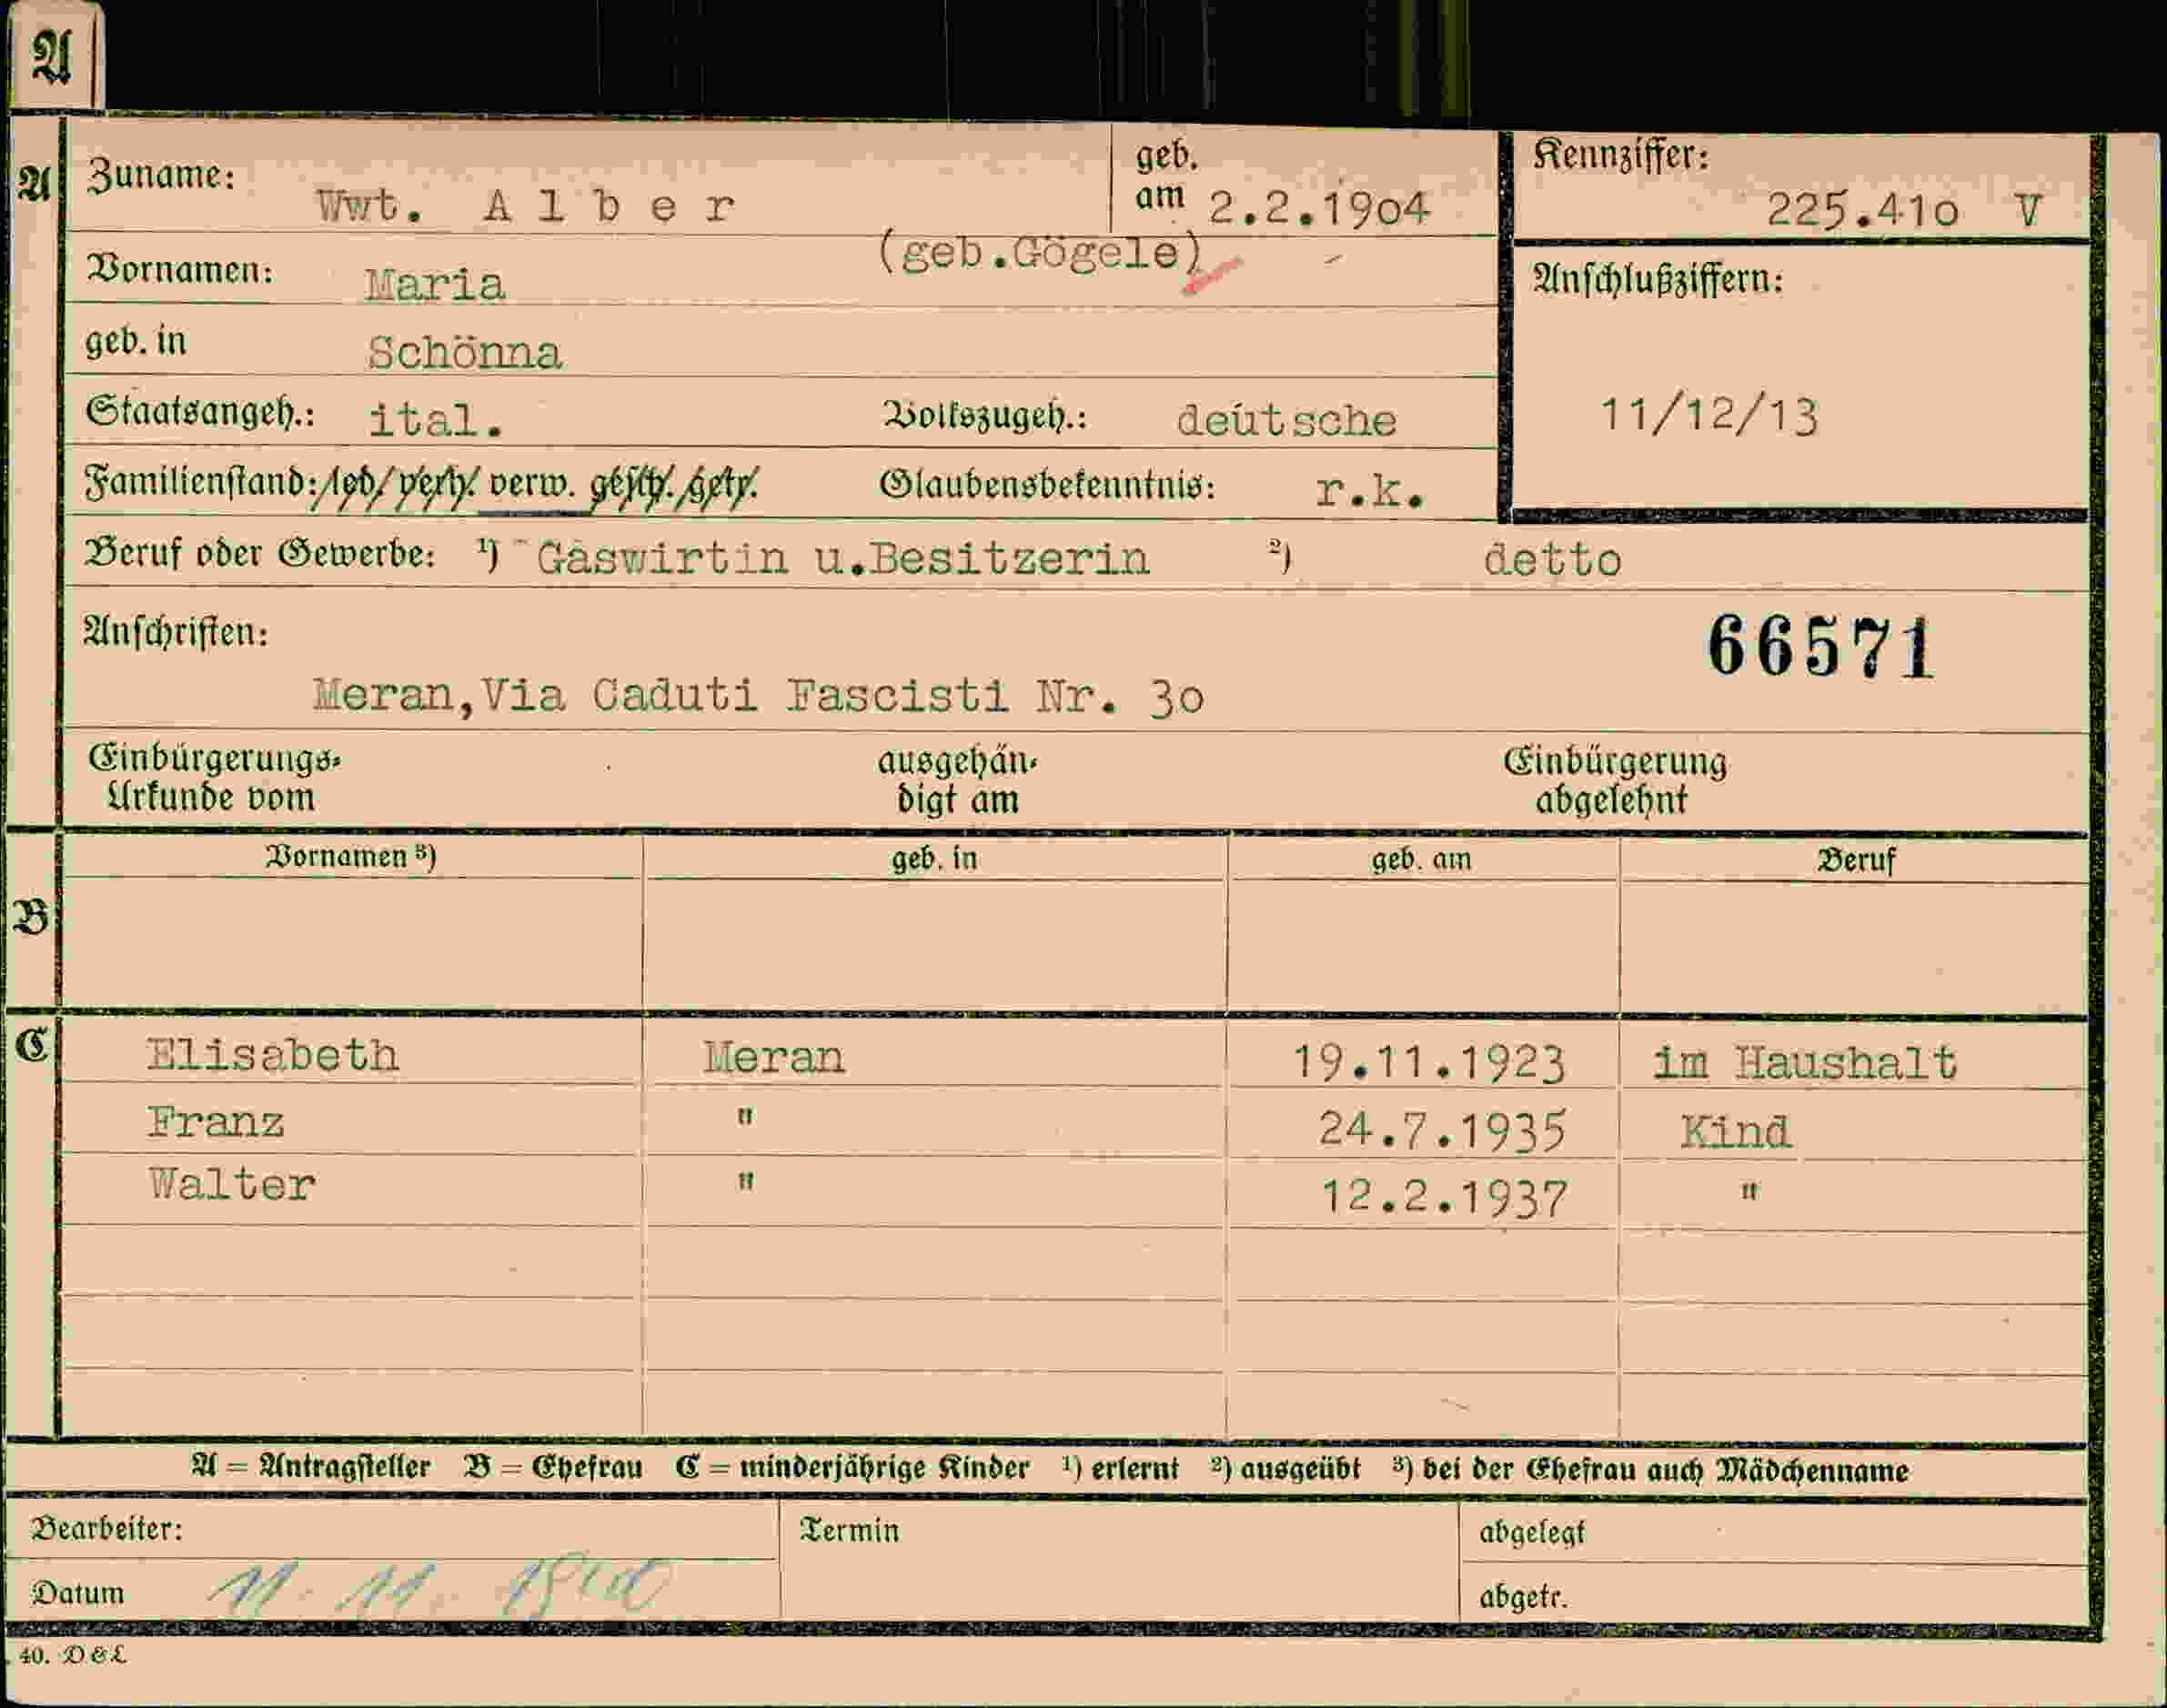 A
A
Zuname: Wwt. A l b e r geb. am 2.2.19o4 Kennziffer: 225.41o V
Vornamen: Maria (geb.Gögele) Anschlußziffern:
geb. in Schönna
Staatsangeh.: ital. Volkszugeh.: deutsche 11/12/13
Familienstand: led. verh. verw. gesch. getr. Glaubensbekenntnis: r.k.
Beruf oder Gewerbe: ¹) Gaswirtin u.Besitzerin ²) detto
Anschriften: 66571
Meran,Via Caduti Fascisti Nr. 3o
Einbürgerungs- ausgehän- Einbürgerung
Urkunde vom digt am abgelehnt
Vornamen ³) geb. in geb. am Beruf
B
C Elisabeth Meran 19.11.1923 im Haushalt
Franz " 24.7.1935 Kind
Walter " 12.2.1937 "
A = Antragsteller B = Ehefrau C = minderjährige Kinder ¹) erlernt ²) ausgeübt ³) bei der Ehefrau auch Mädchenname
Bearbeiter: Termin abgelegt
Datum 11. 11. 1940 abgetr.
40. D & L